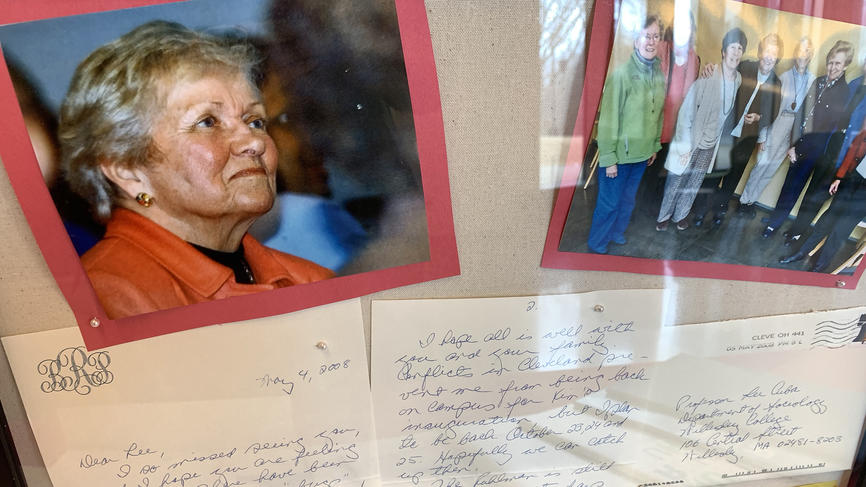 May 4, 2008
Dear Lee,
I so missed seeing you,
I hope you are feeling
have been
2.
I hope all is well with
you and your family.
Conflicts in Cleveland pre-
vent me from being back
on campus for Kim's
inauguration but I plan
to be back October 23, 24 and
25. Hopefully we can catch
up then.
The Ruhlman is still
CLEVE OH 441
05 MAY 2008 PM 8 L
Professor Lee Cuba
Department of Sociology
Wellesley College
106 Central Street
Wellesley, MA 02481-8203